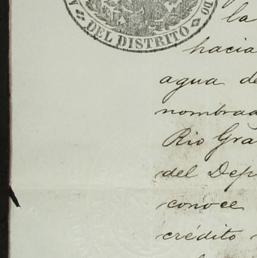 DEL DISTRITO
la
hacia
agua de
nombrad
Rio Gra
del Dep
conoce
crédito